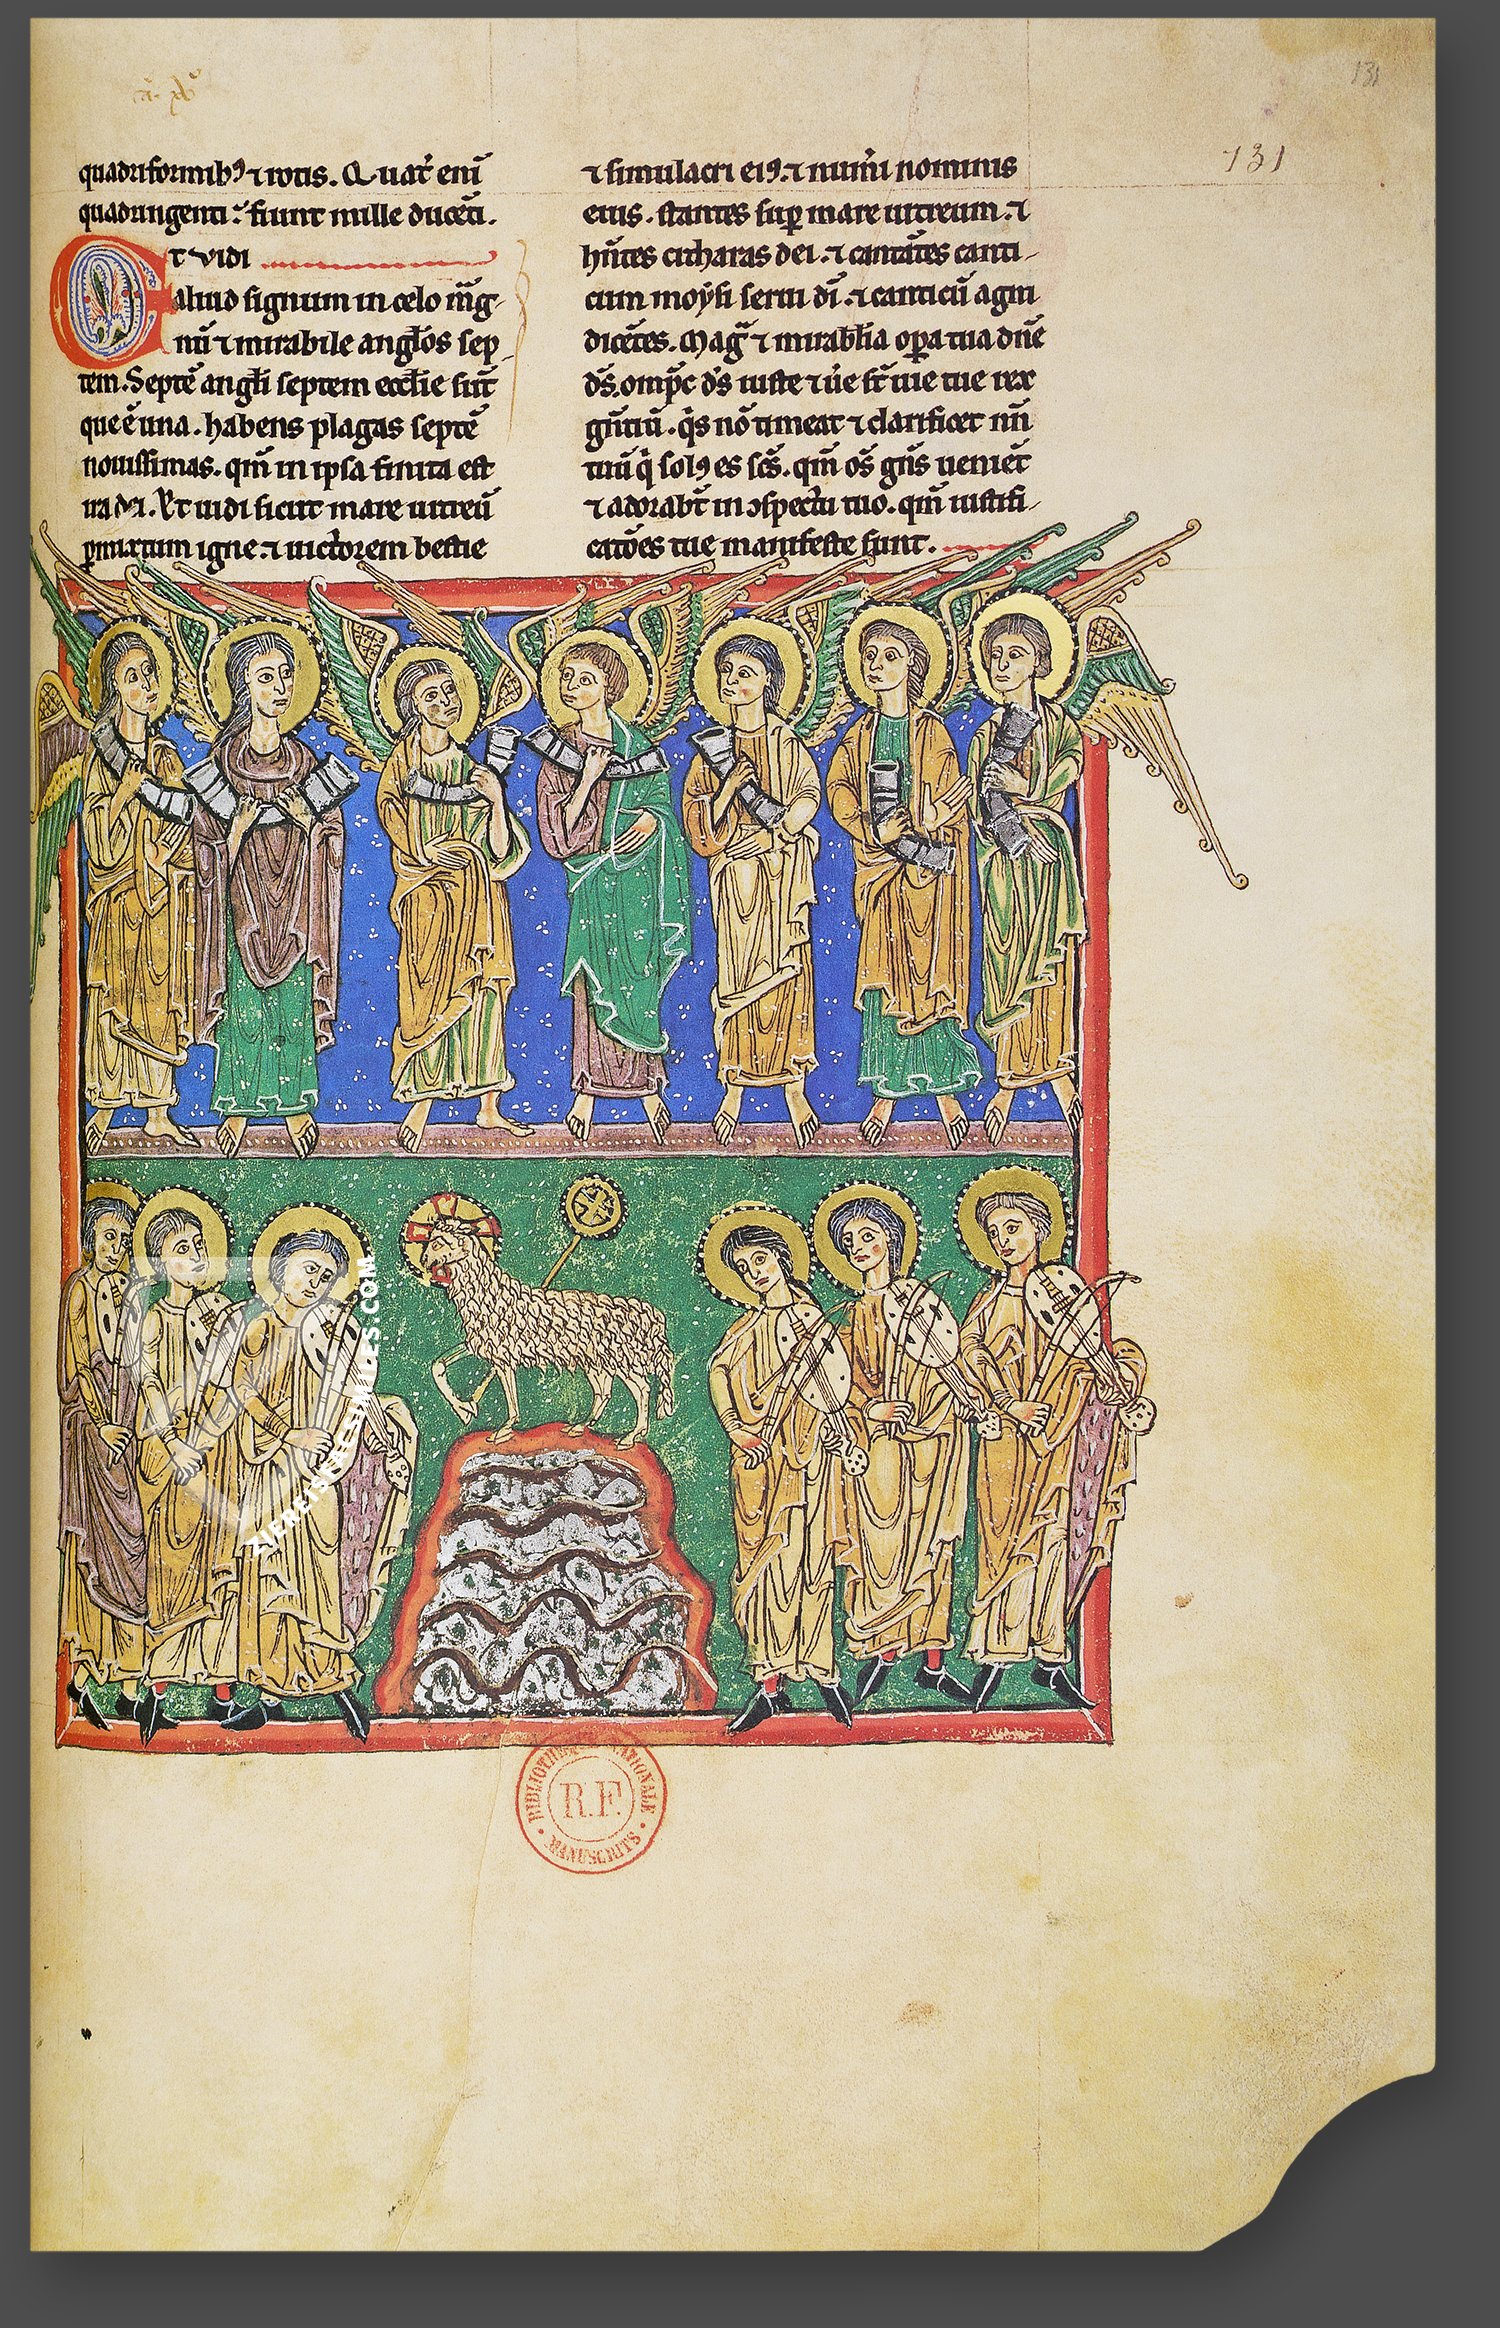 131
131
quadriformibꝯ ⁊ iotis. Quat̉ eni̅
quadringenti ⹎ fiunt mille duce̅ti.
Et vidi
aliud signum in celo ma̅g
nu̅ ⁊ mirabile angl̅os sep
tem. Septe̅ angl̅i septem eccl̅ie su̅t
que e̅ una. habens plagas septe̅
nouissimas. qm̅ in ipsa finita est
ira dei. Et uidi sicut mare uitreu̅
ꝑmixtum igne. ⁊ uictorem bestie
⁊ simulacri eiꝯ. ⁊ num̅i nominis
eius. stantes sup̅ mare uitreum. ⁊
hn̅tes citharas dei. ⁊ canta̅tes canti-
cum moẏsi serui di̅. ⁊ canticu̅ agni
dice̅tes. Mag̅ ⁊ mirabl̅ia oꝑa tua dn̅e
ds̅. omp̅c ds̅ iuste ⁊ ue̅ st̅ uie tue rex
gn̅tiu̅. q̇s no̅ timeat ⁊ clarificet nn̅
tuu̅ q̇ solꝯ es sc̅s. qm̅ os̅ gn̅s uenie̅t
⁊ adorabt̅ in ↄspectu tuo. qm̅ iustifi-
catio̅es tue manifeste sunt.
ZIEREIS FACSIMILES.COM
BIBLIOTHEQUE NATIONALE
R.F.
MANUSCRITS